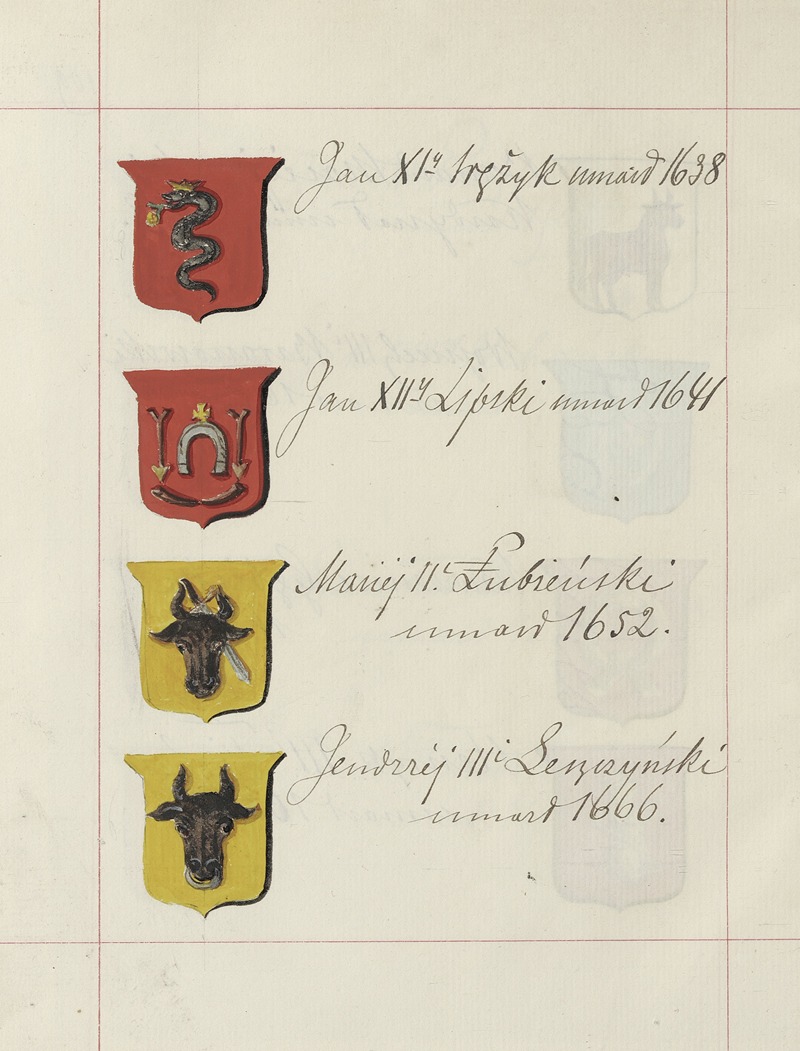 Jan XIy Wężyk umarł 1638
Jan XIIy Lipski umarł 1641
Maciéj IIi Łubieński
umarł 1652.
Jendrzéj IIIi Leszczyński
umarł 1666.